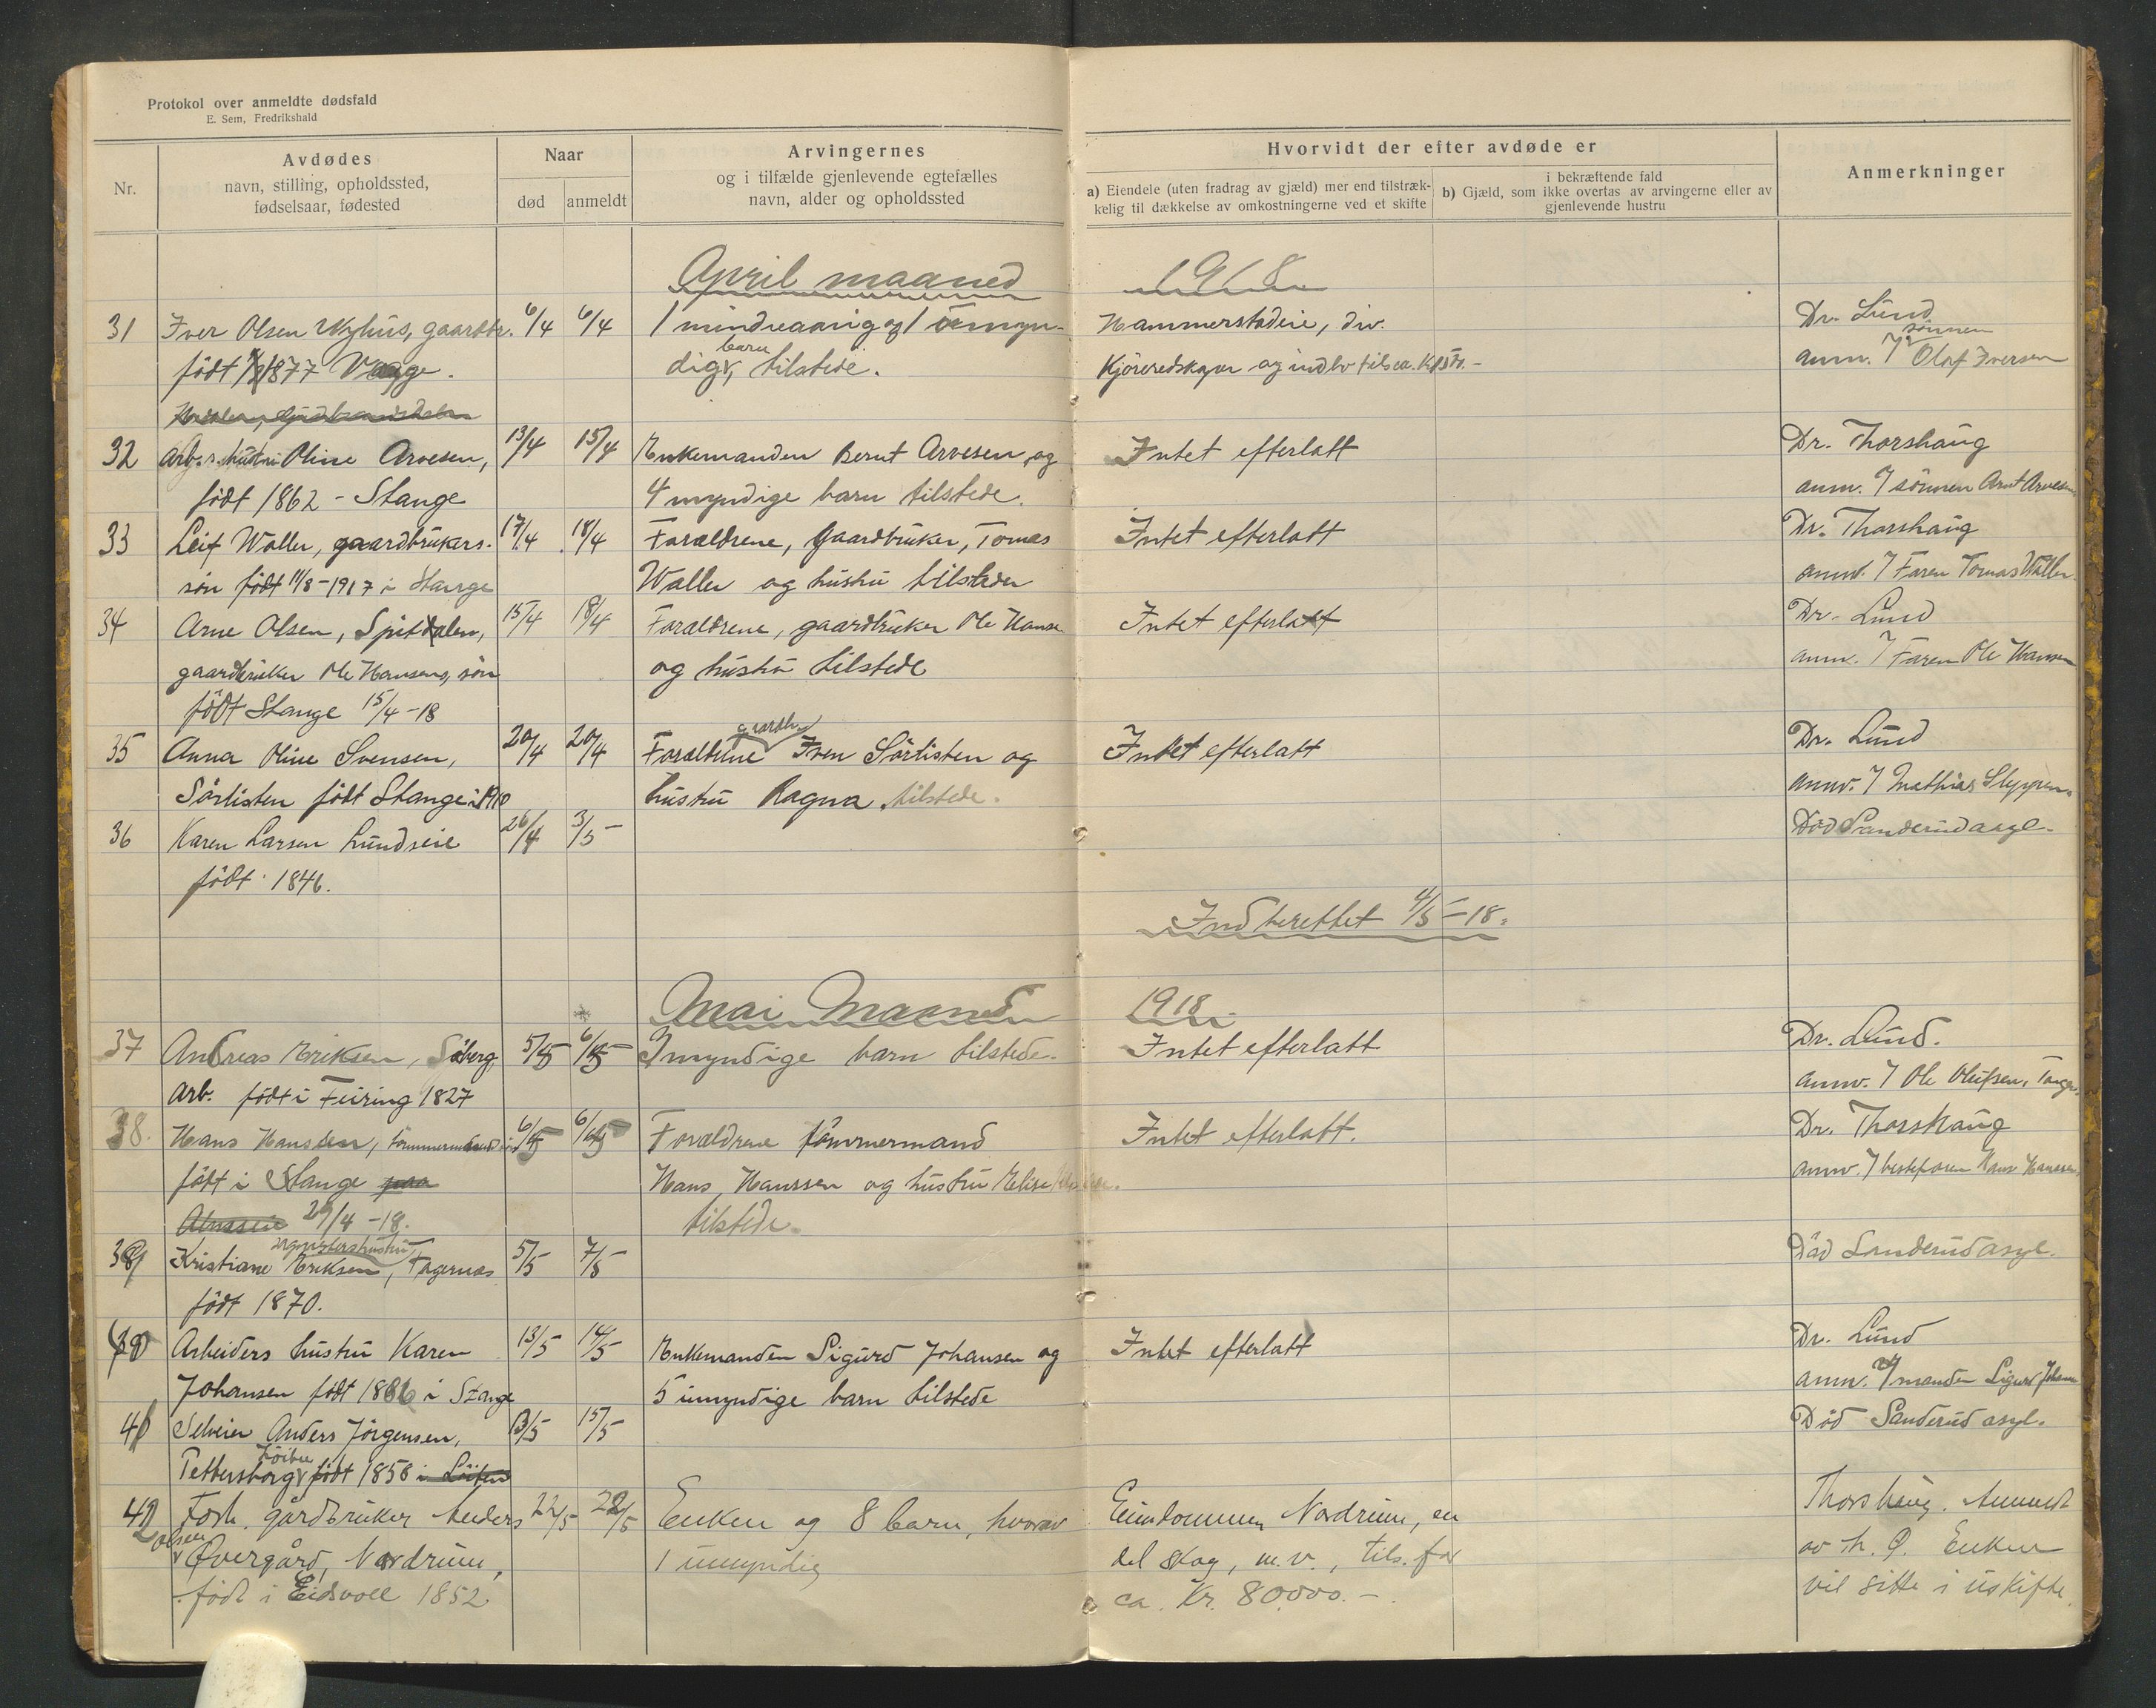 Protokol over anmeldte dødsfald
E. Sem, Fredrikshald
Nr.
Avdødes
navn, stilling, opholdssted,
fødselsaar, fødested
Naar
død
anmeldt
Arvingernes
og i tilfælde gjenlevende egtefælles
navn, alder og opholdssted
Hvorvidt der efter avdøde er
a) Eiendele (uten fradrag av gjæld) mer end tilstræk-
kelig til dækkelse av omkostningerne ved et skifte
i bekræftende fald
b) Gjæld, som ikke overtas av arvingerne eller av
gjenlevende hustru
Anmerkninger
April maaned 1918
31 Iver Olsen gaardbr. 6/4 6/4 1 mindreaarig og 1 umyn- Hammerstadeie, div. Dr. Lund
født 1877 dig barn tilstede. Kjøreredskaper og indbo til ca. anm. sønnen Olaf Iversen
32 Arb.s hustru Oline Arvesen, 13/4 15/4 Enkemanden Bernt Arvesen, og Intet efterlatt Dr. Thorshaug
født 1862 - Stange 4 myndige barn tilstede. anm. sønnen Arnt Arvesen
33 Leif Waller, gaardbrukers- 17/4 18/4 Forældrene, Gaardbruker, Tomas Intet efterlatt Dr. Thorshaug
søn født 11/8-1917 i Stange Waller og hustru tilstede anm. Faren Tomas Waller
34 Arne Olsen, Spitdalen, 15/4 18/4 Forældrene, gaardbruker Ole Hansen Intet efterlatt Dr. Lund
gaardbruker Ole Hansens, søn og hustru tilstede anm. Faren Ole Hansen
født Stange 15/4-18
35 Anna Oline Svensen, 20/4 20/4 Forældrene gaardbr. Sørlisten og Intet efterlatt Dr. Lund
Sørlisten født Stange i 1910 hustru Ragna tilstede. anm. Mathias
36 Karen Larsen Lundseie 26/4 3/5 Død Sanderud asyl.
født 1846.
Indberettet 4/5-18.
Mai Maaned 1918.
37 Andreas Eriksen, 5/5 6/5 myndige barn tilstede. Intet efterlatt Dr. Lund.
Arb. født i Feiring 1827 anm. Ole Olufsen,
38. Hans Hanssen, tømmermand 6/5 6/5 Forældrene tømmermand Intet efterlatt. Dr. Thorshaug
født i Stange paa Hans Hanssen og hustru Elise anm. bestefaren Hans Hanssen
29/4-18. tilstede
39 Kristiane Eriksen, Fagernes 5/5 7/5 Død Sanderud asyl.
født 1870.
40 Arbeiders hustru Karen 13/5 14/5 Enkemanden Sigurd Johansen og Intet efterlatt Dr. Lund
Johansen født 1886 i Stange 5 umyndige barn tilstede anm. manden Sigurd Johansen
41 Selveier Anders Jørgensen, 13/5 15/5 Død Sanderud asyl.
Pettersborg født 1858 i Løiten
42 Forh. gårdbruker Anders 22/5 22/5 Enken og 8 barn, hvorav Eiendommen Nordrum, en Thorshaug. Anmeldt
Olsen Øvergård, Nordrum, 1 umyndig del skog, m.v., tils. for av h. O. Enken
født i Eidsvoll 1852 ca. Kr. 80000.- vil sitte i uskifte